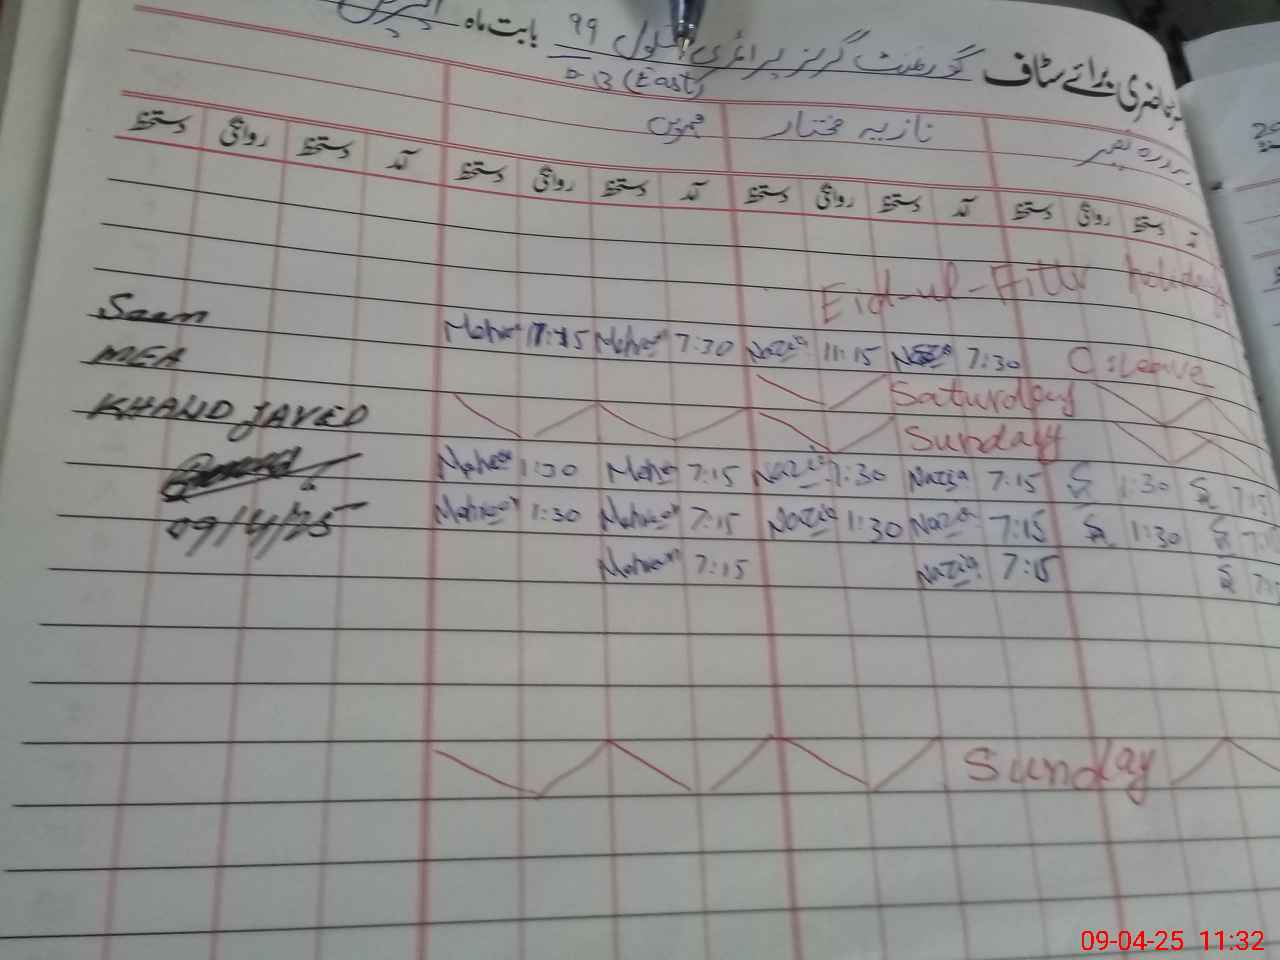 حاضری برائے سٹاف گورنمنٹ گرلز پرائمری سکول 99 بابت ماہ اپریل
DB (East)
نازیہ مختار
آمد دستخط روانگی دستخط آمد دستخط روانگی دستخط آمد دستخط روانگی دستخط آمد دستخط روانگی دستخط
Eid-ul-Fitr holidays
Seen
17:15 7:30 Nazia 11:15 Nazia 7:30 C:leave
MEA
Saturday
KHALID JAVED
Sunday
1:30 7:15 Nazia 1:30 Nazia 7:15 1:30 7:15
09/4/25
1:30 7:15 Nazia 1:30 Nazia 7:15 1:30
7:15 Nazia 7:15
Sunday
09-04-25 11:32